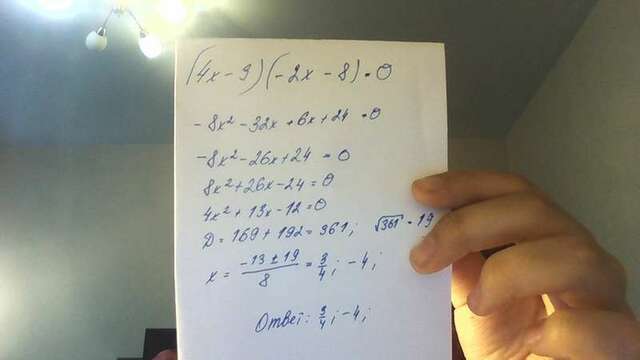 (4x-3)(-2x-8)=0
-8x²-32x+6x+24=0
-8x²-26x+24=0
8x²+26x-24=0
4x²+13x-12=0
D=169+192=361; √361=19
x=(-13±19)/8=3/4; -4;
Ответ: 3/4; -4;